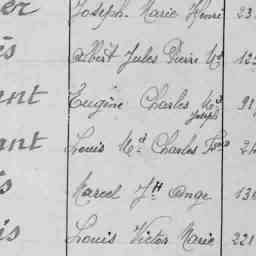 er Joseph Marie Henri 23
és Albert Jules Pierre Mie 12
ant Eugène Charles Mie 91
Joseph
ant Louis Mie Charles Fçois 24
is Marcel Jh Ange 136
is Louis Victor Marie 221